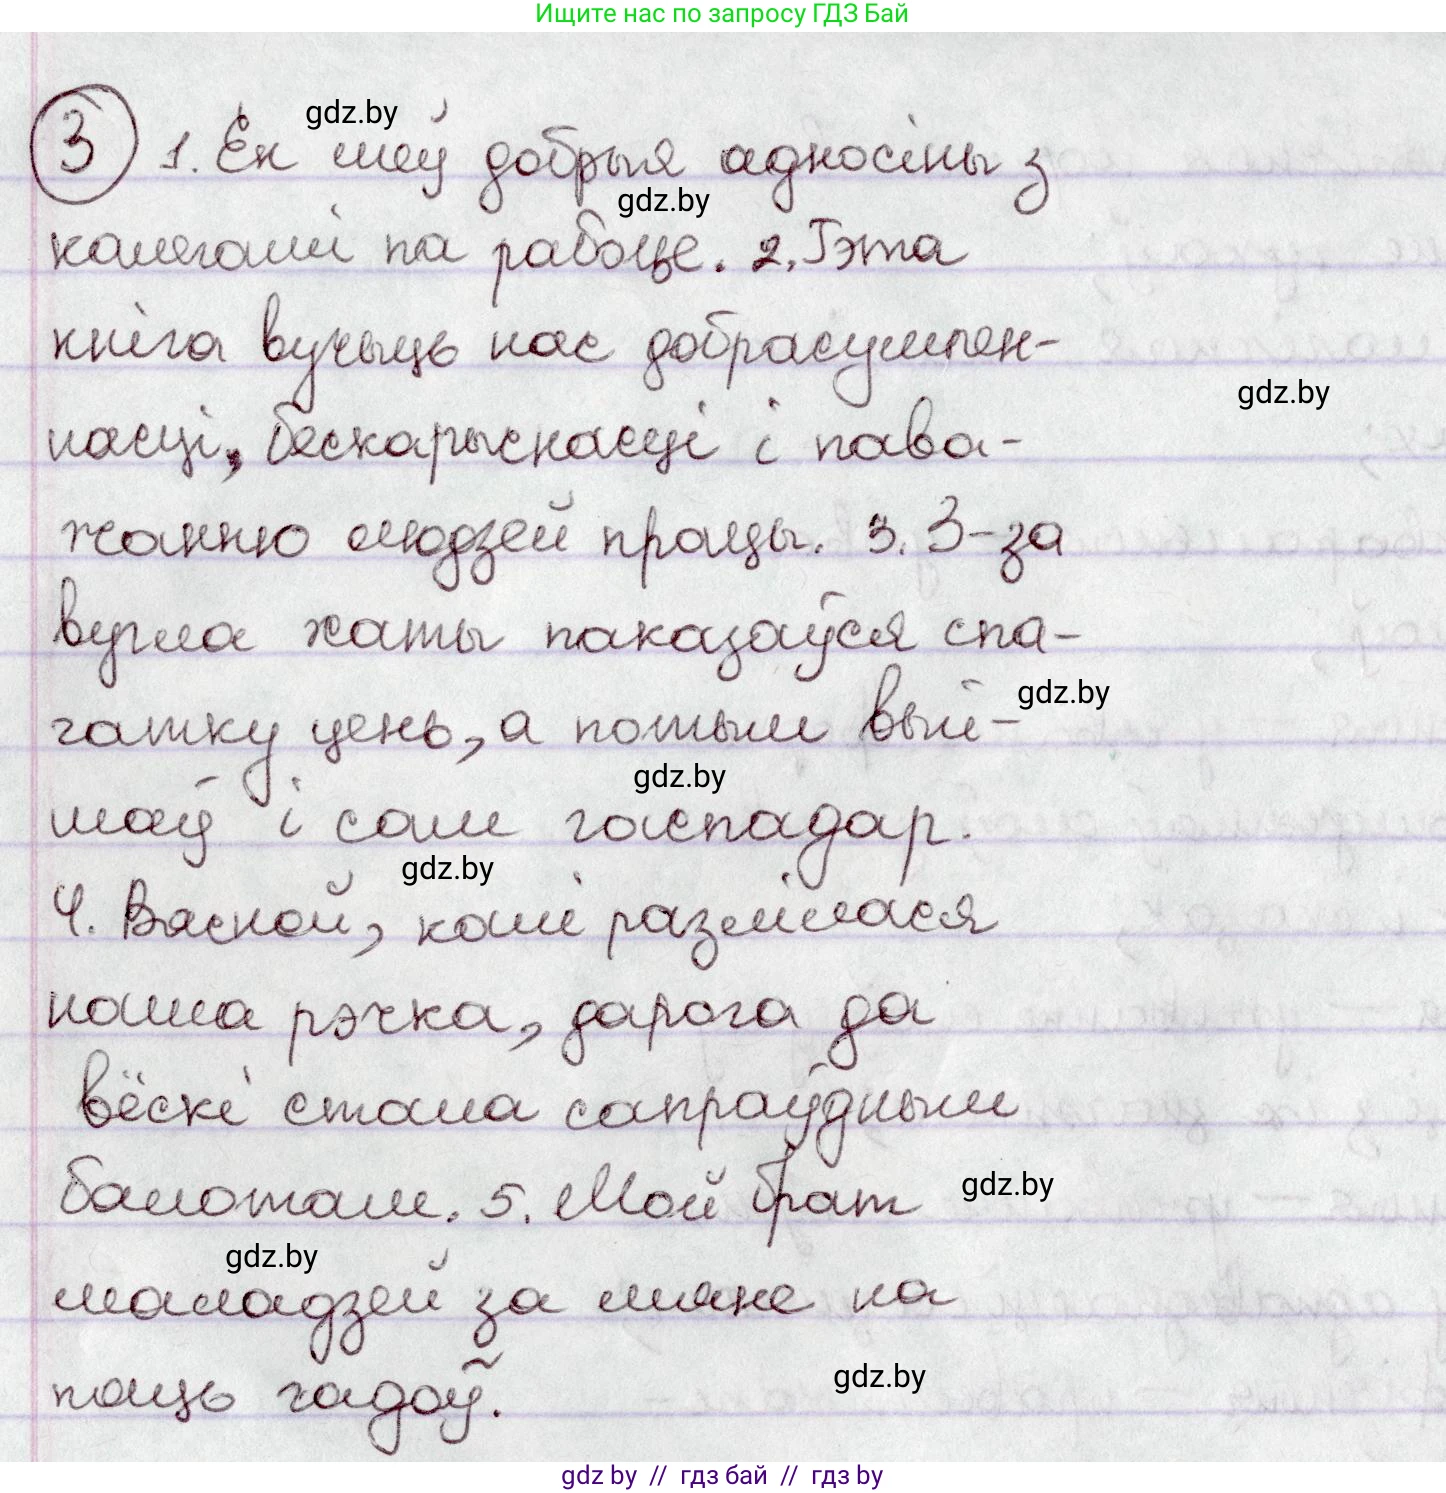 Ищите нас по запросу ГДЗ Бай
gdz.by
3 1. Ён меў добрыя адносіны з
gdz.by
калегамі па рабоце. 2. Гэта
кніга вучыць нас добрасумлен-
gdz.by
насці, бескарыснасці і пава-
жанню людзей працы. 3. З-за
вугла хаты паказаўся спа-
gdz.by
чатку цень, а потым вый-
gdz.by
шаў і сам гаспадар.
gdz.by
4. Вясной, калі разлілася
наша рэчка, дарога да
вёскі стала сапраўдным
балотам. 5. Мой брат
gdz.by
gdz.by
маладзей за мяне на
пяць гадоў.
gdz.by
gdz by // гдз бай // гдз by